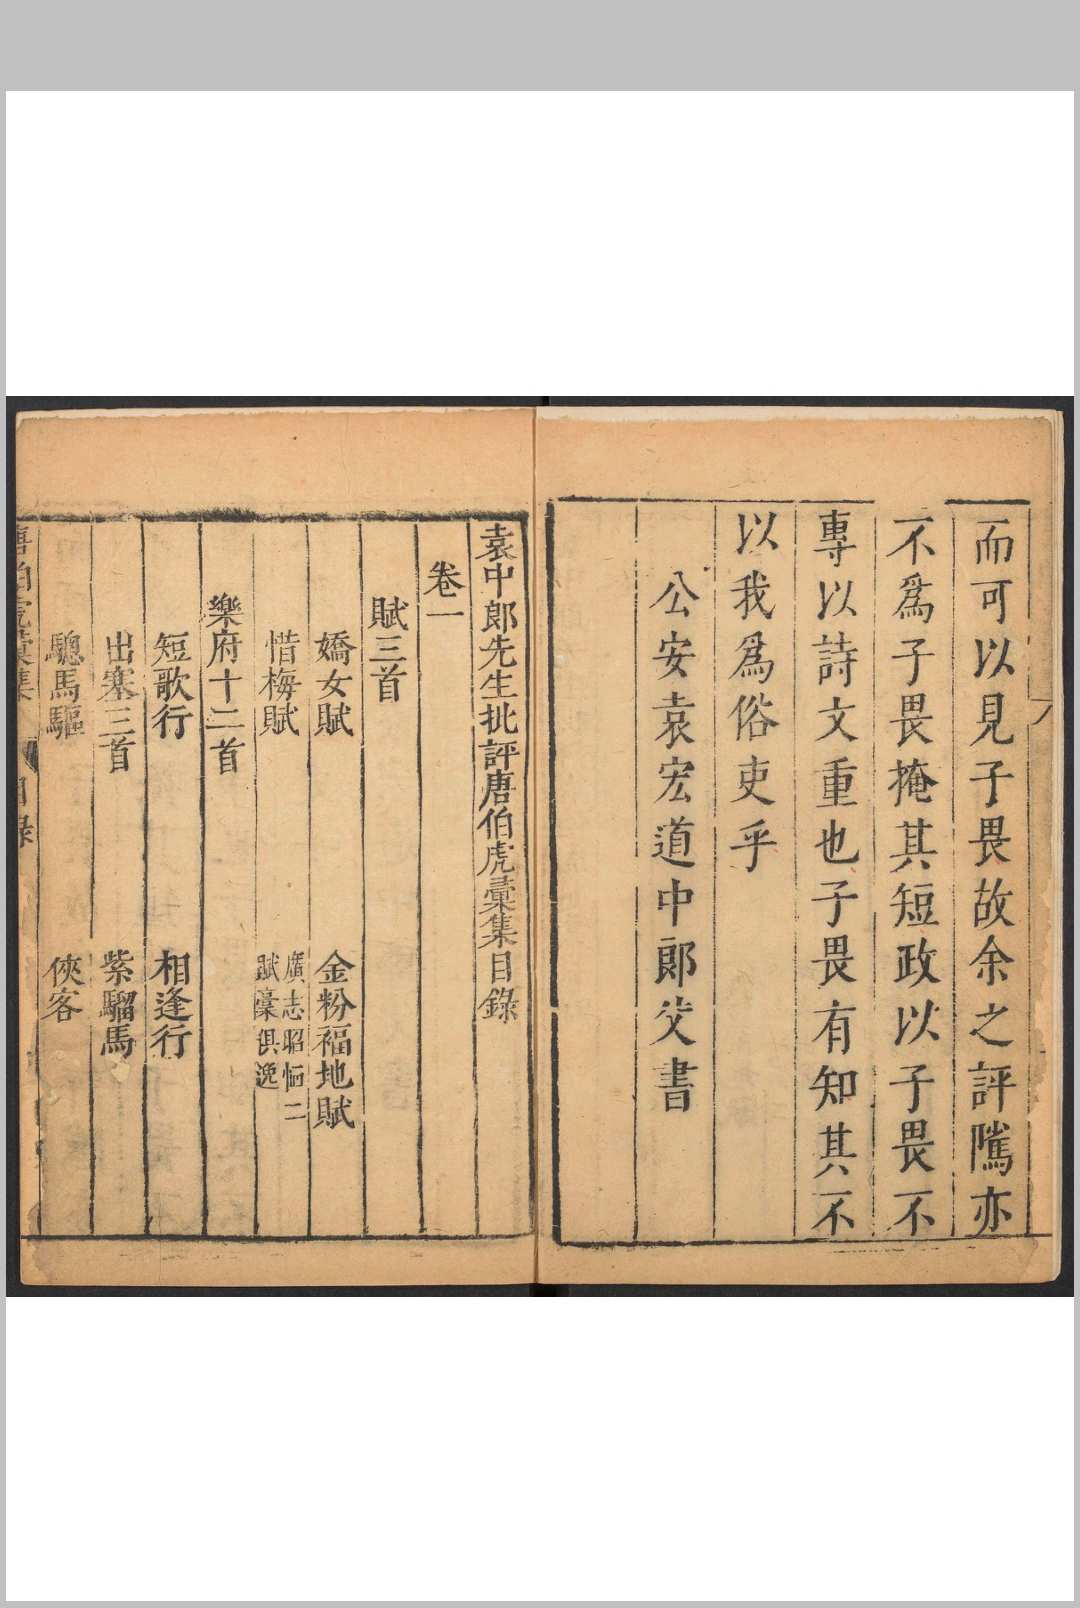 而可以見子畏故余之評隲亦
不爲子畏掩其短政以子畏不
專以詩文重也子畏有知其不
以我爲俗吏乎
公安袁宏道中郎父書
袁中郎先生批評唐伯虎彙集目錄
卷一
賦三首
嬌女賦　金粉福地賦
惜梅賦　廣志昭恤二
賦藁俱逸
樂府十二首
短歌行　相逢行
出塞三首　紫騮馬
驄馬驅　俠客
唐伯虎彙集　目錄